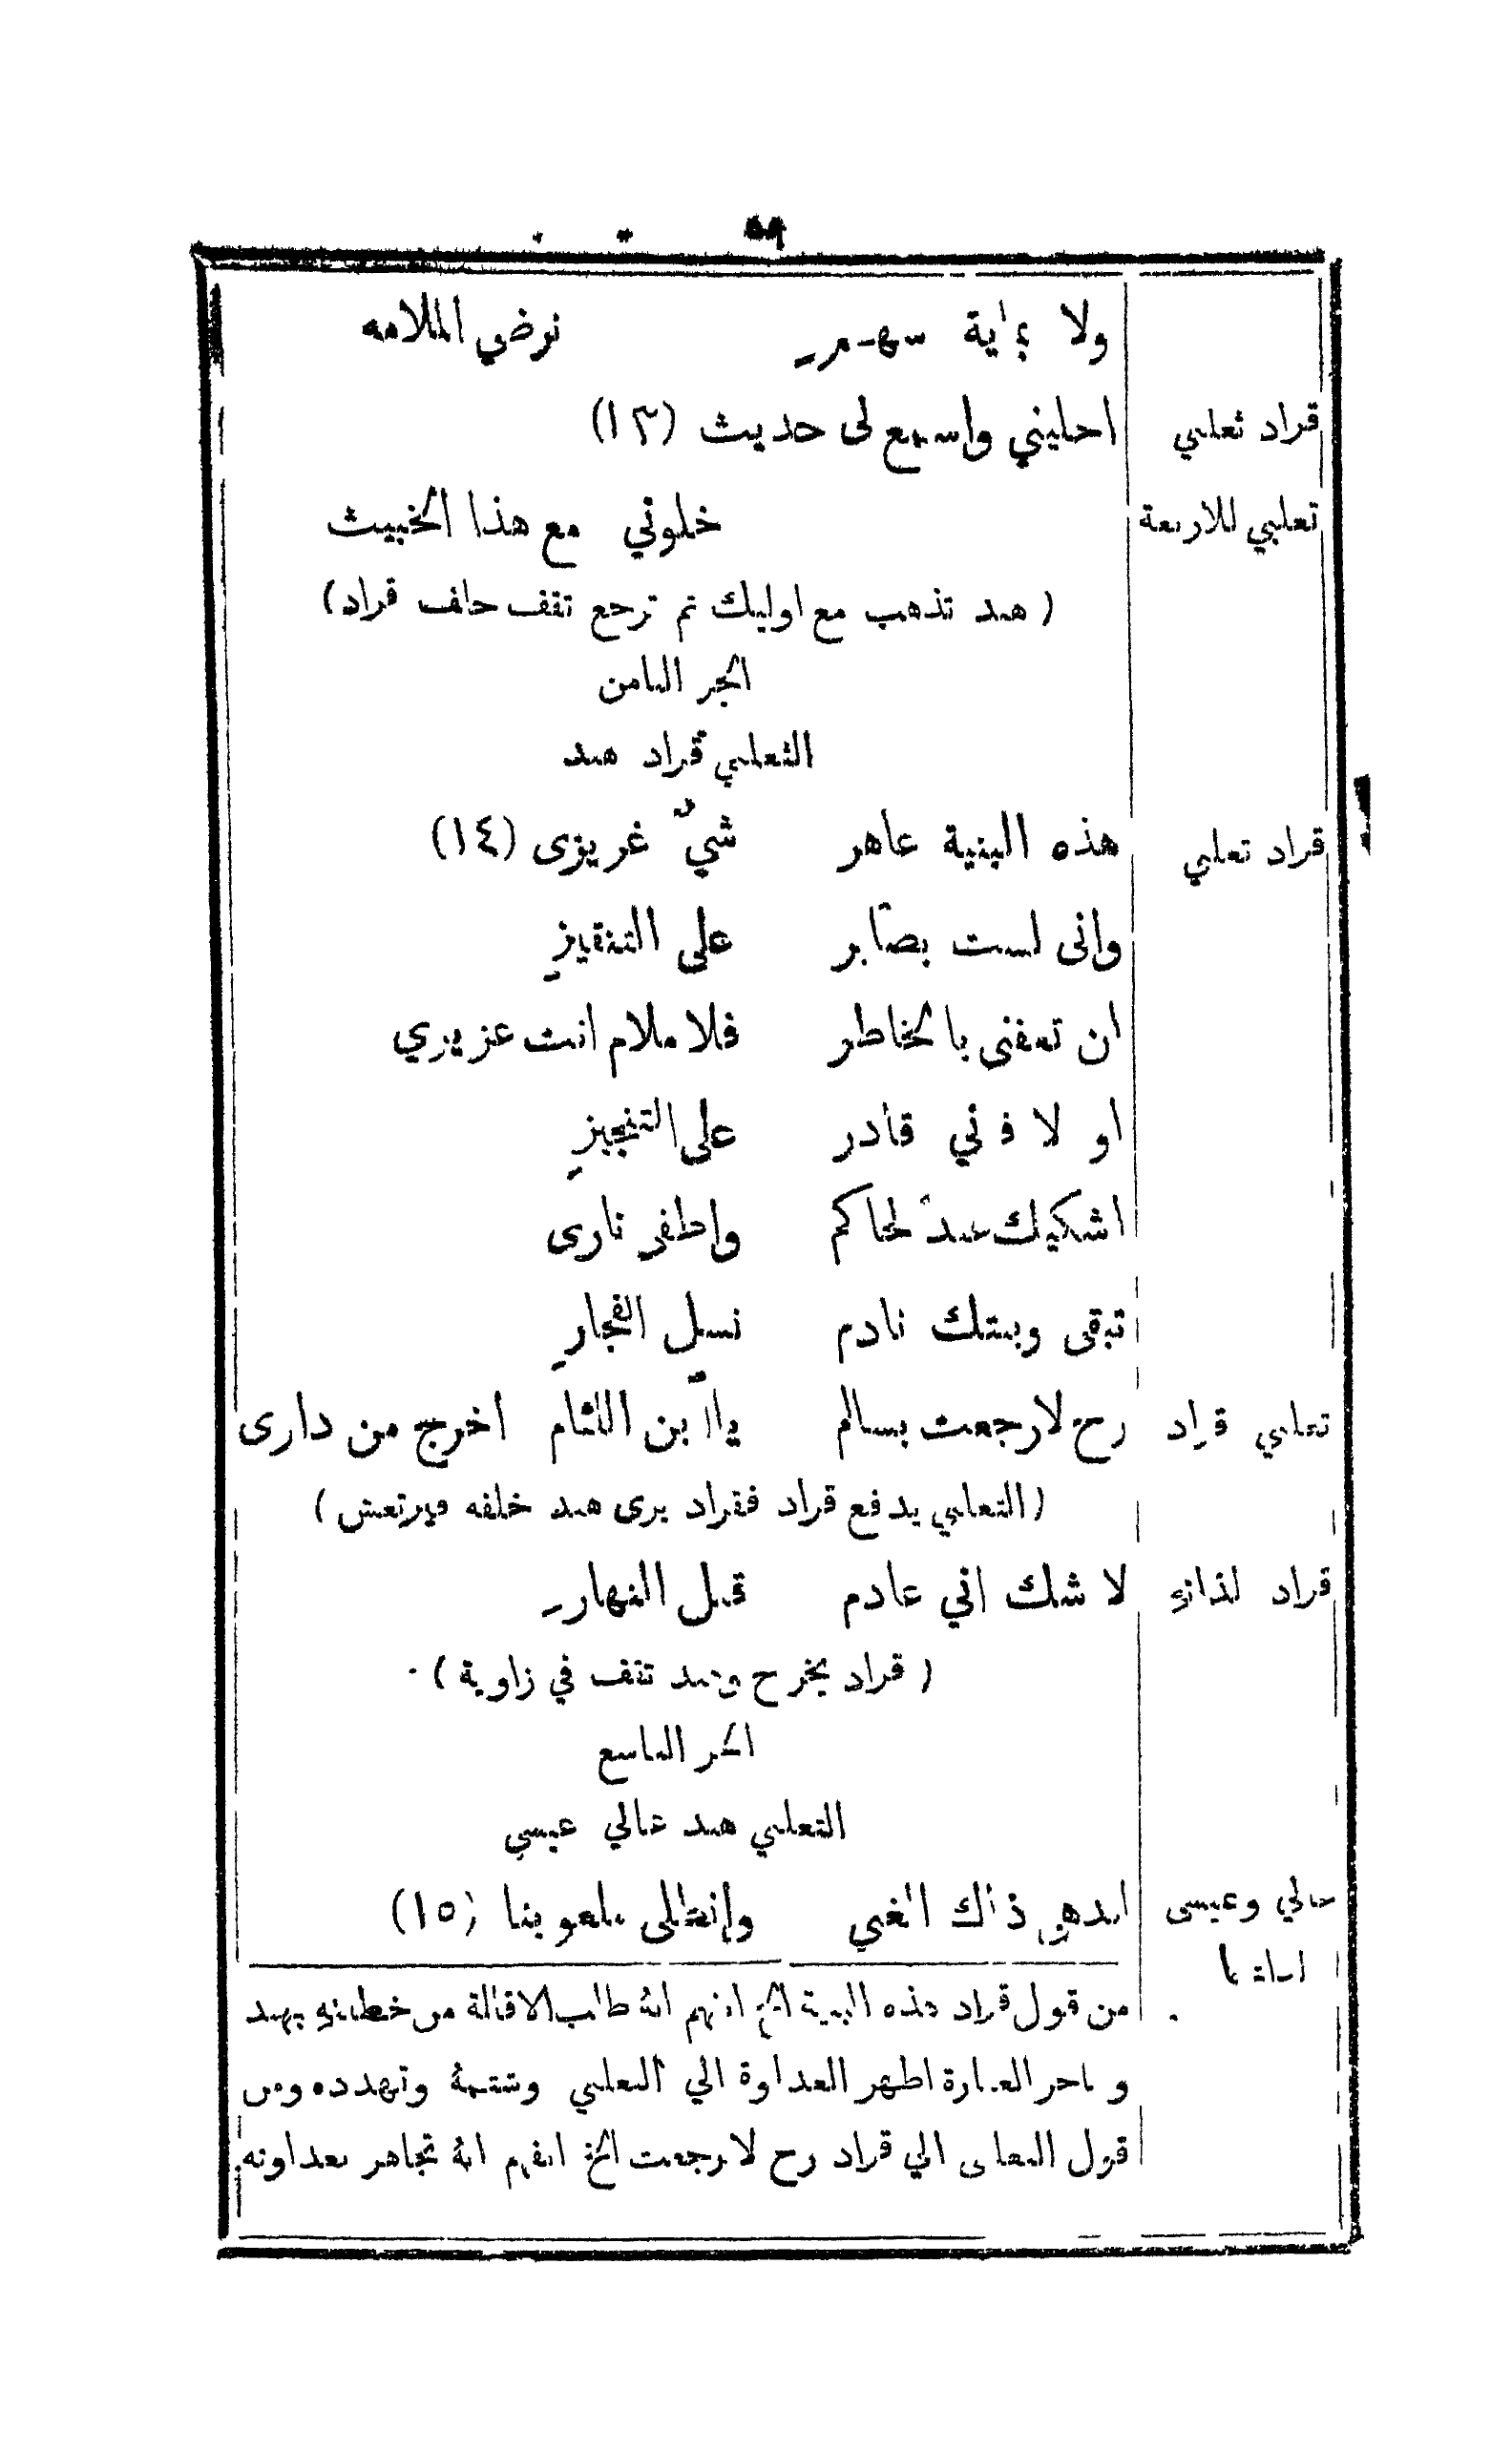 ٥٩
ولا بماية سهم نرضي الملامه
قراد ثعلبي احليني واسمع لى حديث (١٣)
تعلبي للاربعة خلوني مع هذا الخبيث
(هند تذهب مع اوليك تم ترجع تقف حلف قراد)
الجز الثامن
الثعلبي قراد هند
قراد تعلبي هذه البنية عاهر شيٌ غريزى (١٤)
وانى لست بصابر على التنقيز
ان تعفنى بالخاطر فلا ملام انت عزيزي
او لا فاني قادر على التنجيز
اشكيك عند الحاكم واظفر نارى
تبقى وبنتك نادم نسل الفجار
تعلبي قراد رح لا رجعت بسالم يا ابن اللئام اخرج من دارى
(التعلبي يدفع قراد فقراد يرى هند خلفه فيرتعش)
قراد لذاته لا شك اني عادم قبل النهار
(قراد يخرج وهند تقف في زاوية)
الجز التاسع
التعلبي هند عالي عيسي
عالي وعيسى ذاك الغبي (١٥)
من قول قراد هذه البنية الخ انه طالب الاقالة من خطبته بهند
وباخر العبارة اظهر العداوة الي الثعلبي وشتمة وتهدده ومن
قول التعلبى الي قراد رح لا رجعت الخ انفهم انه تجاهر بعداوته